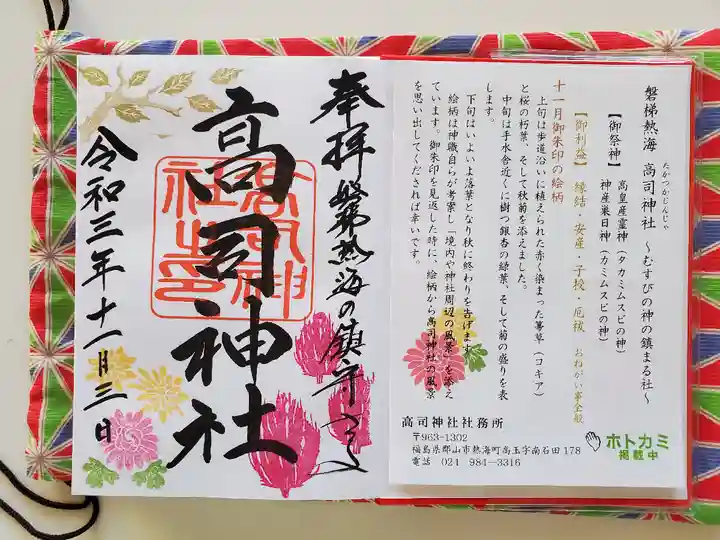 奉拝 磐梯熱海の鎮守
高司神社
高司神社之印
令和三年十一月三日
磐梯熱海 高司神社 ～むすびの神の鎮まる社～
たかつかじんじゃ
【御祭神】 高皇産霊神(タカミムスビの神)
神産巣日神(カミムスビの神)
【御利益】 縁結・安産・子授・厄祓 おねがい事全般
十一月御朱印の絵柄
上旬は歩道沿いに植えられた赤く染まった箒草(コキア)
と桜の朽葉、そして秋菊を添えました。
中旬は手水舎近くに樹つ銀杏の緑葉、そして菊の盛りを表
します。
下旬はいよいよ落葉となり秋に終わりを告げます。
絵柄は神職自らが考案し「境内や神社周辺の風景」を添え
ています。御朱印を見返した時に、絵柄から高司神社の風景
を思い出してくだされば幸いです。
高司神社社務所
〒963-1302
福島県郡山市熱海町高玉字南石田178
電話 024 984-3316
ホトカミ
掲載中